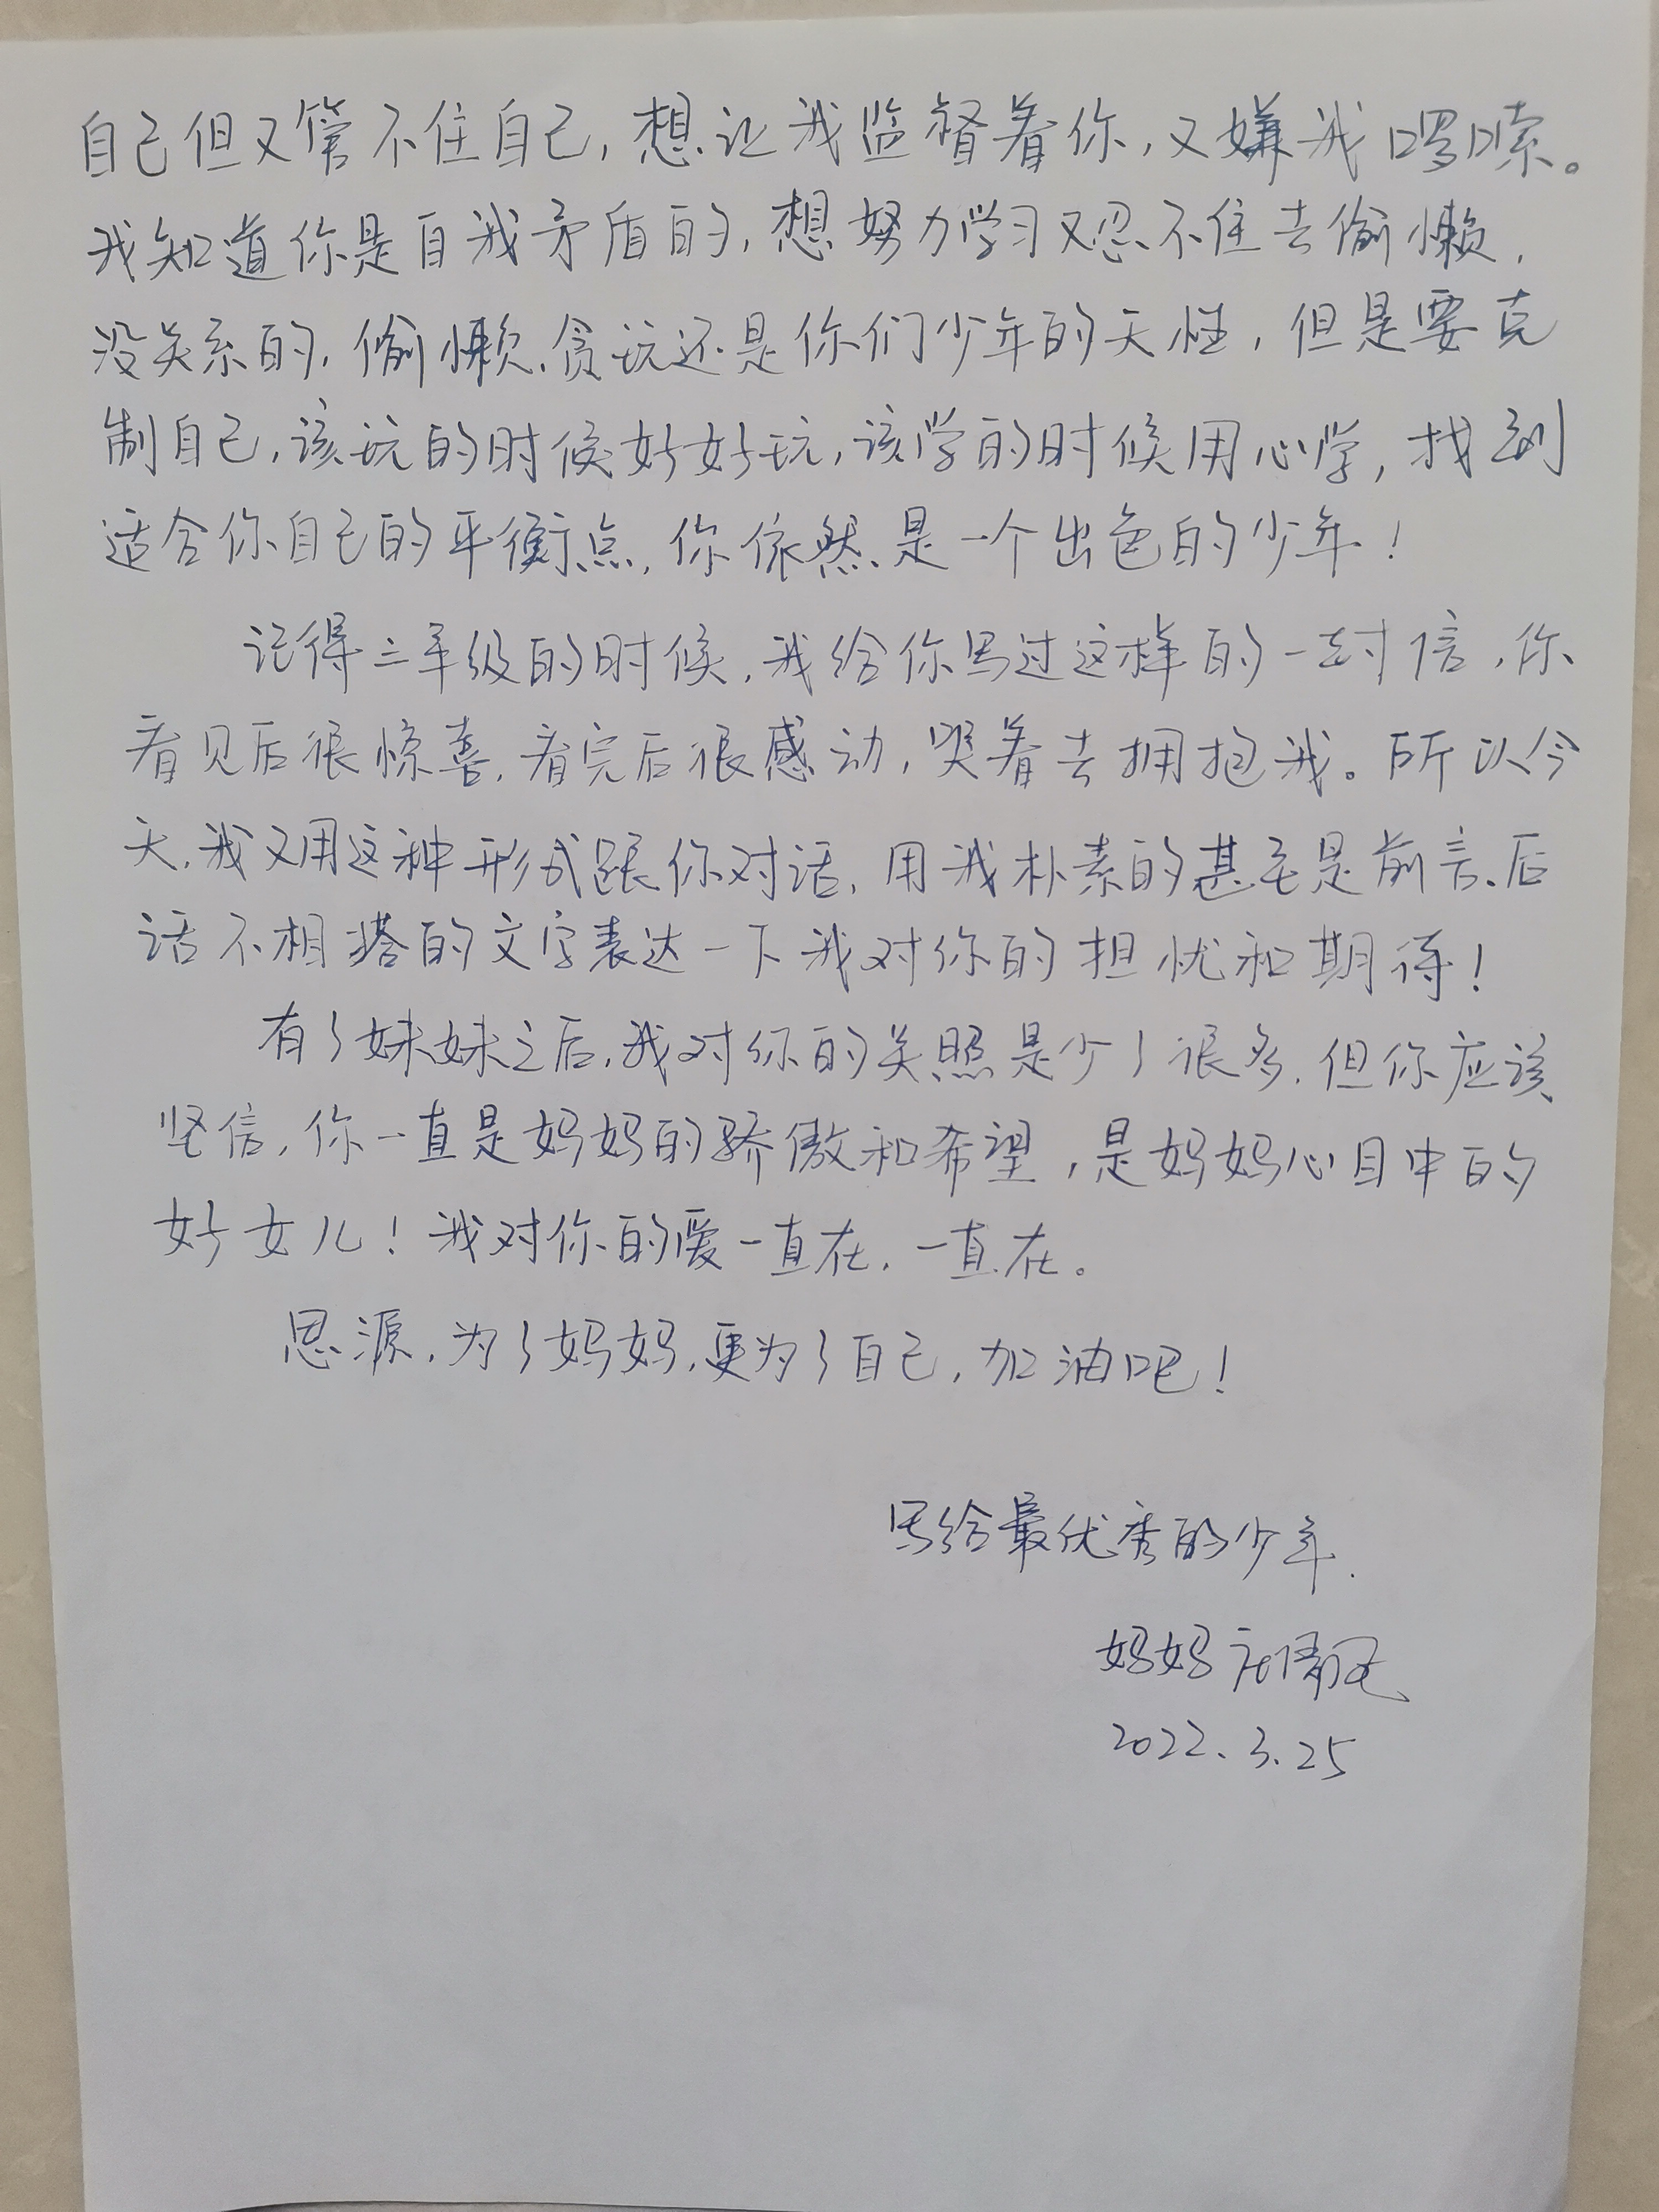 自己但又管不住自己,想让我监督着你,又嫌我啰嗦。
我知道你是自我矛盾的,想努力学习又忍不住去偷懒,
没关系的,偷懒、贪玩还是你们少年的天性,但是要克
制自己,该玩的时候好好玩,该学的时候用心学,找到
适合你自己的平衡点,你依然是一个出色的少年!
记得三年级的时候,我给你写过这样的一封信,你
看见后很惊喜,看完后很感动,哭着去拥抱我。所以今
天,我又用这种形式跟你对话,用我朴素的甚至是前言、后
话不相搭的文字表达一下我对你的担忧和期待!
有了妹妹之后,我对你的关照是少了很多,但你应该
坚信,你一直是妈妈的骄傲和希望,是妈妈心目中的
好女儿!我对你的爱一直在,一直在。
思源,为了妈妈,更为了自己,加油吧!
写给最优秀的少年.
妈妈
2022.3.25